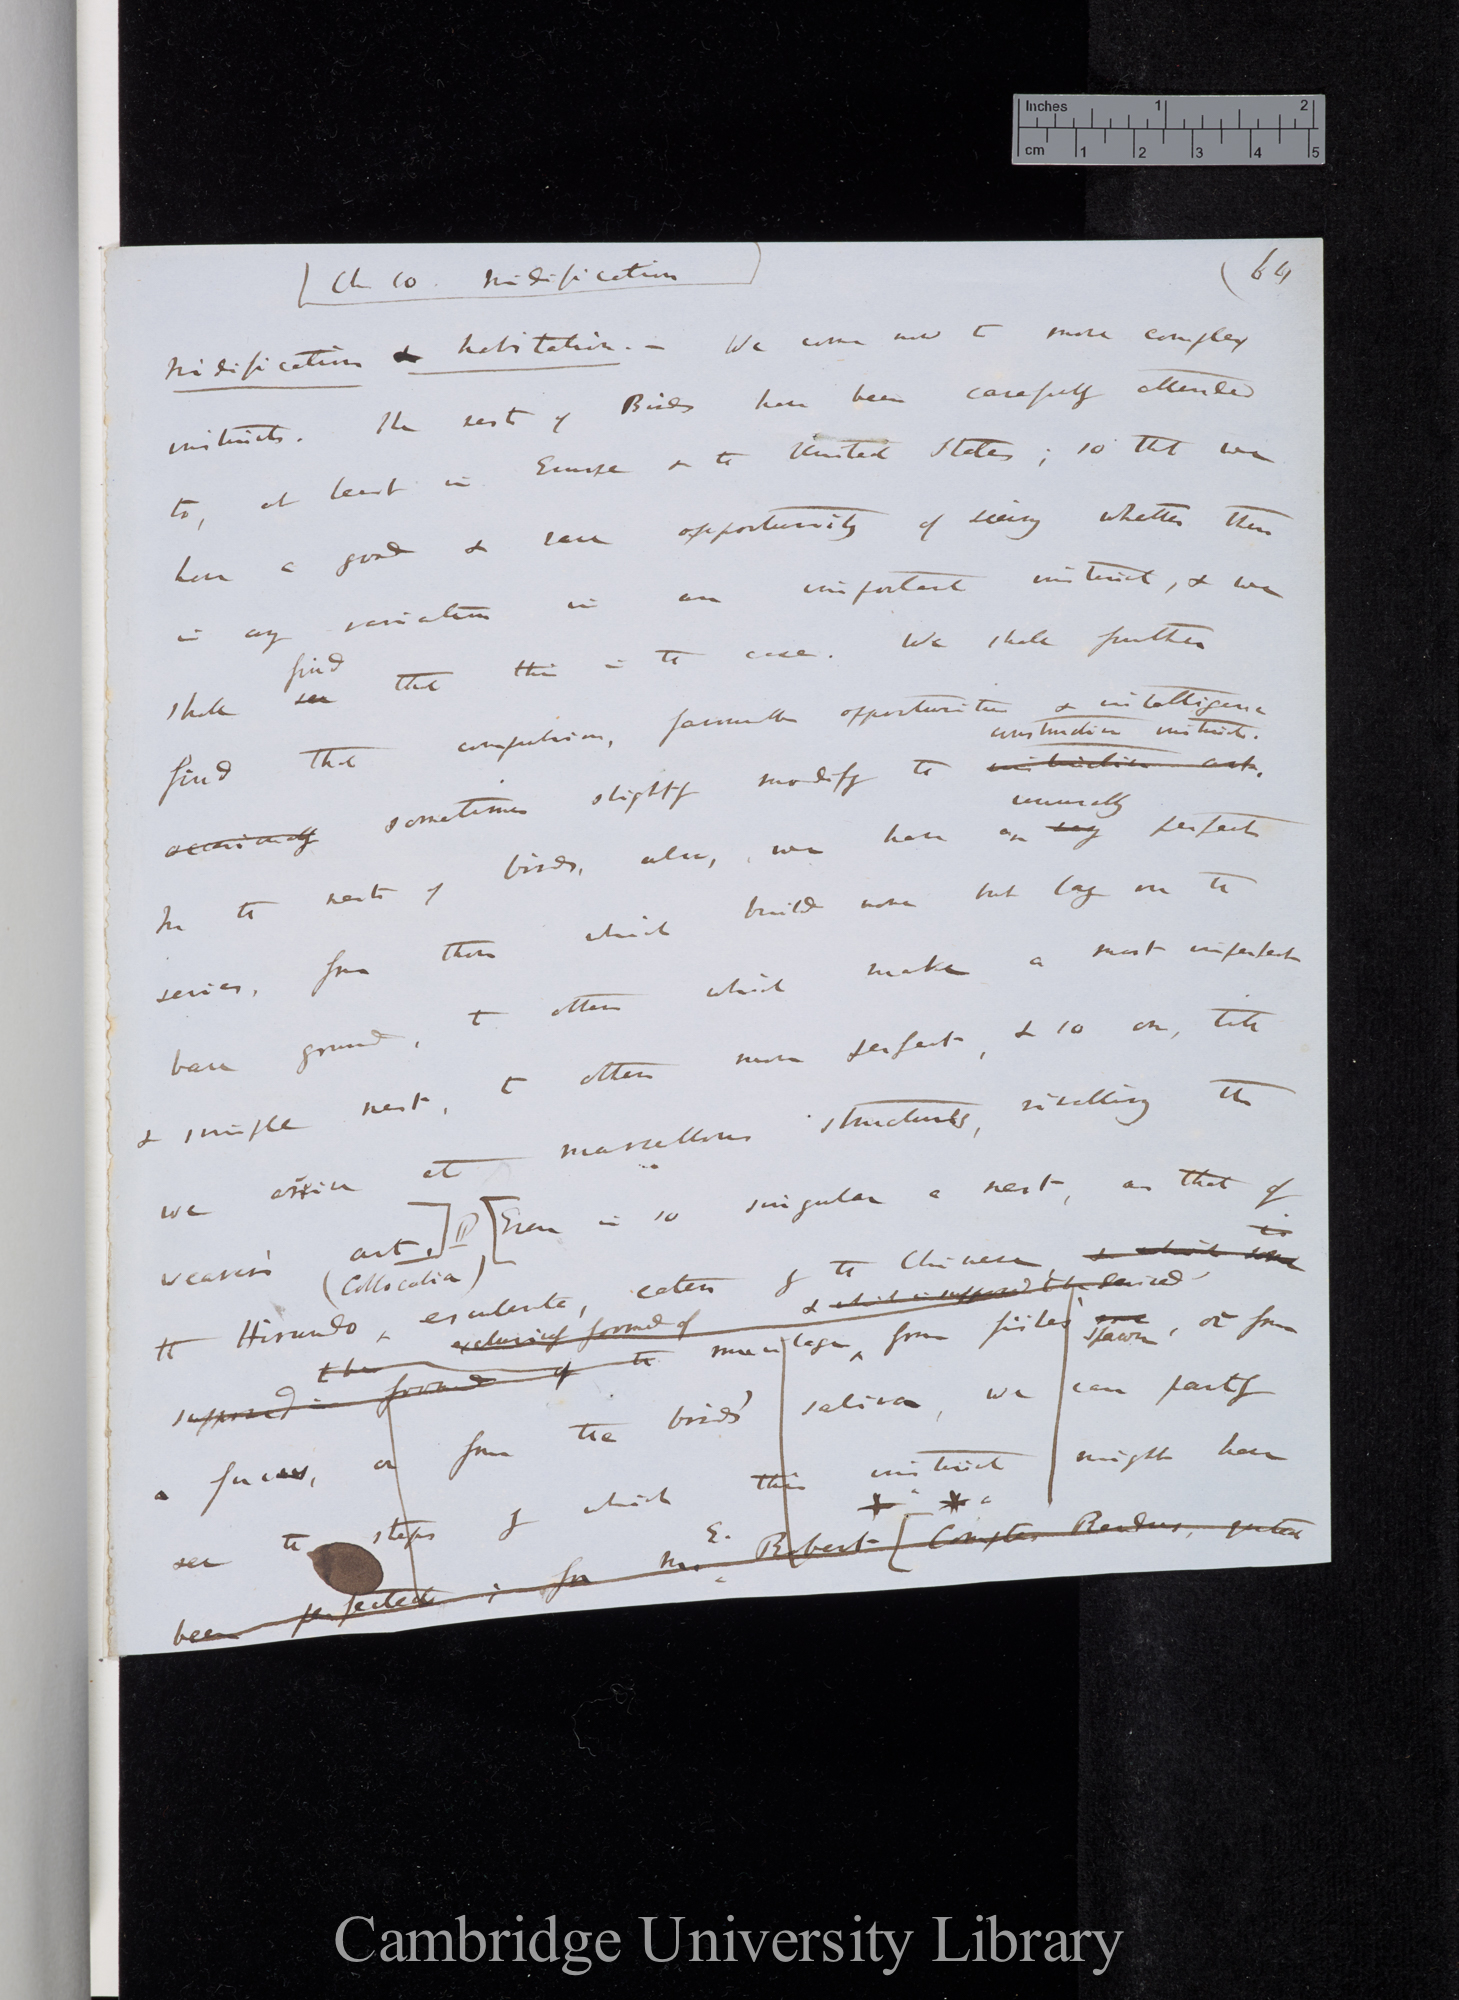 Inches 1 2
cm 1 2 3 4 5
Ch 10. Nidification
(64
Nidification & habitation. — We come now to more complex
instincts. The nests of Birds have been carefully attended
to, at least in Europe & the United States; so that we
have a good & rare opportunity of seeing whether there
is any variation in an important instinct, & we
find
shall see that this is the case. We shall further
find that compulsion, favourable opportunities & intelligence
constructive instinct.
occasionally sometimes slightly modify the
unusually
In the nests of birds, also, we have an very perfect
series, from those which build none but lay on the
bare ground, to others which make a most imperfect
& simple nest, to others more perfect, & so on, till
we arrive at marvellous structures, rivalling the
weaver's art.] [Even in so singular a nest, as that of
is
(Collocalia)
the Hirundo esculenta, eaten by the Chinese & which
exclusively formed of & which is supposed to be derived
supposed is formed of the mucilage from fishes' spawn, or from
a fucus, or from the birds' saliva, we can partly
see the steps by which this instinct might have
been perfected; for Mr. E. Robert [Comptes Rendus, quoted
Cambridge University Library